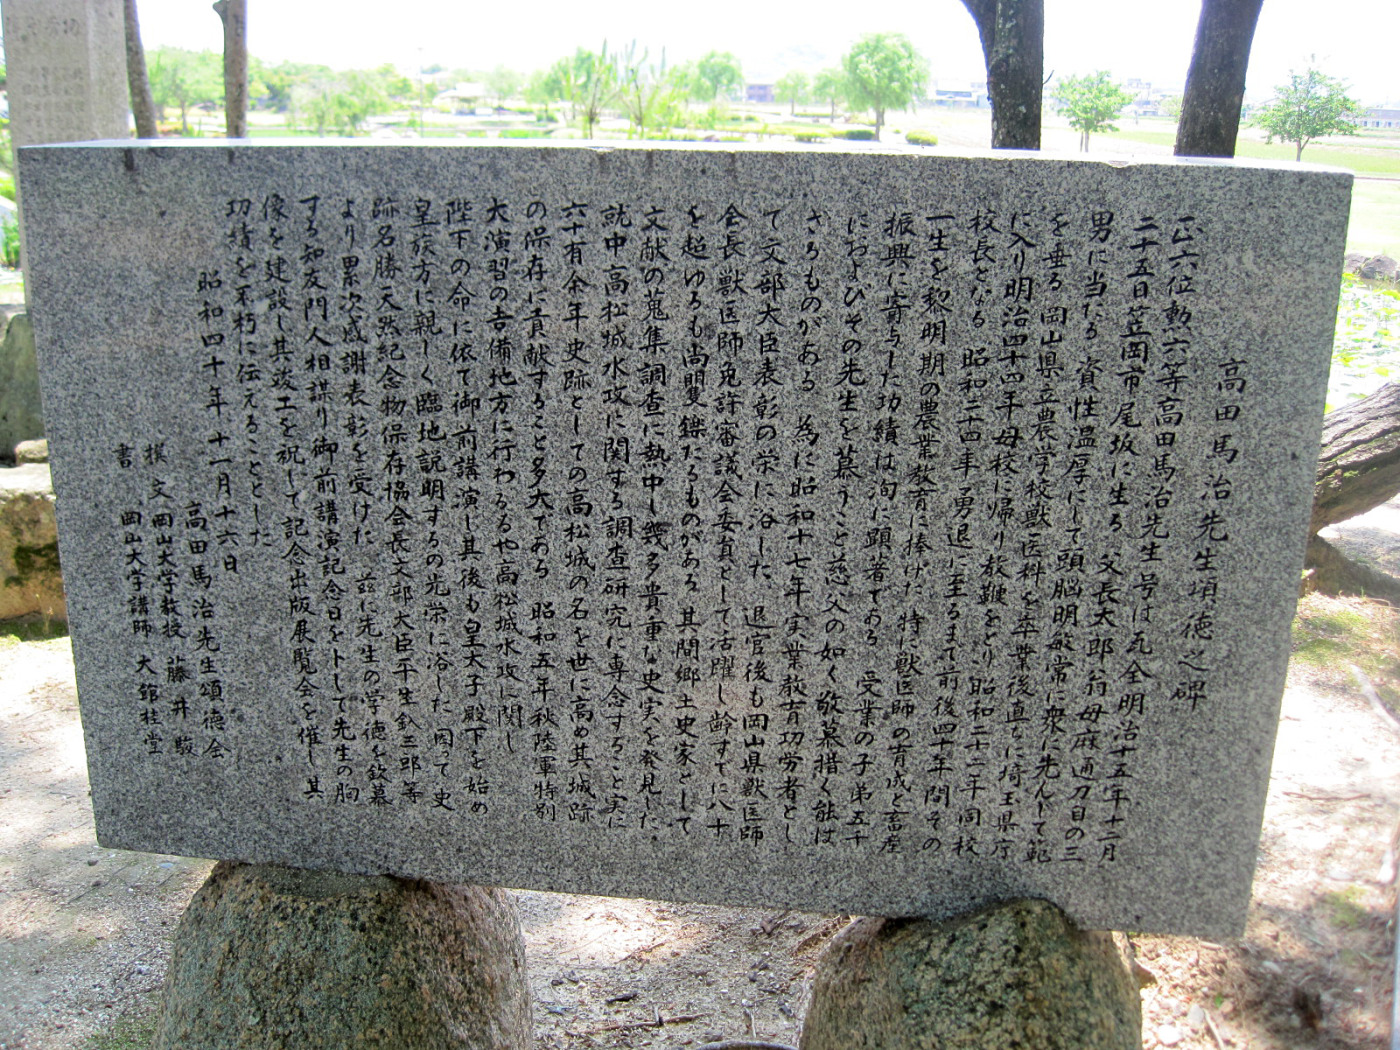 高田馬治先生頌徳之碑
正六位勲六等高田馬治先生号は瓦全明治十五年十二月
二十五日笠岡市尾坂に生る 父長太郎翁母麻通刀自の三
男に当たる 資性温厚にして頭脳明敏常に衆に先んして範
を垂る 岡山県立農学校獣医科を卒業後直ちに埼玉県庁
に入り明治四十四年母校に帰り教鞭をとり昭和二十二年同校
校長となる 昭和二四年勇退に至るまで前後四十年間その
一生を黎明期の農業教育に捧げた 特に獣医師の育成と畜産
振興に寄与した功績は洵に顕著である 受業の子弟五千
におよびその先生を慕うこと慈父の如く敬慕措く能は
ざるものがある 為に昭和十七年実業教育功労者とし
て文部大臣表彰の栄に浴した 退官後も岡山県獣医師
会長獣医師免許審議会委員として活躍し齢すでに八十
を超ゆるも尚矍鑠たるものがある 其間郷土史家として
文献の蒐集調査に熱中し幾多貴重な史実を発見した。
就中高松城水攻に関する調査研究に専念すること実に
六十有余年史跡としての高松城の名を世に高め其城跡
の保存に貢献すること多大である 昭和五年秋陸軍特別
大演習の吉備地方に行わるるや高松城水攻に関し
陛下の命に依て御前講演し其後も皇太子殿下を始め
皇族方に親しく臨地説明するの光栄に浴した 因て史
跡名勝天然紀念物保存協会長文部大臣平生釟三郎等
より累次感謝表彰を受けた 茲に先生の学徳を欽慕
する知友門人相謀り御前講演記念日をトして先生の胸
像を建設し其竣工を祝して記念出版展覧会を催し其
功績を不朽に伝えることとした
昭和四十年十一月十六日
高田馬治先生頌徳会
撰文 岡山大学教授 藤井駿
書 岡山大学講師 大館桂堂